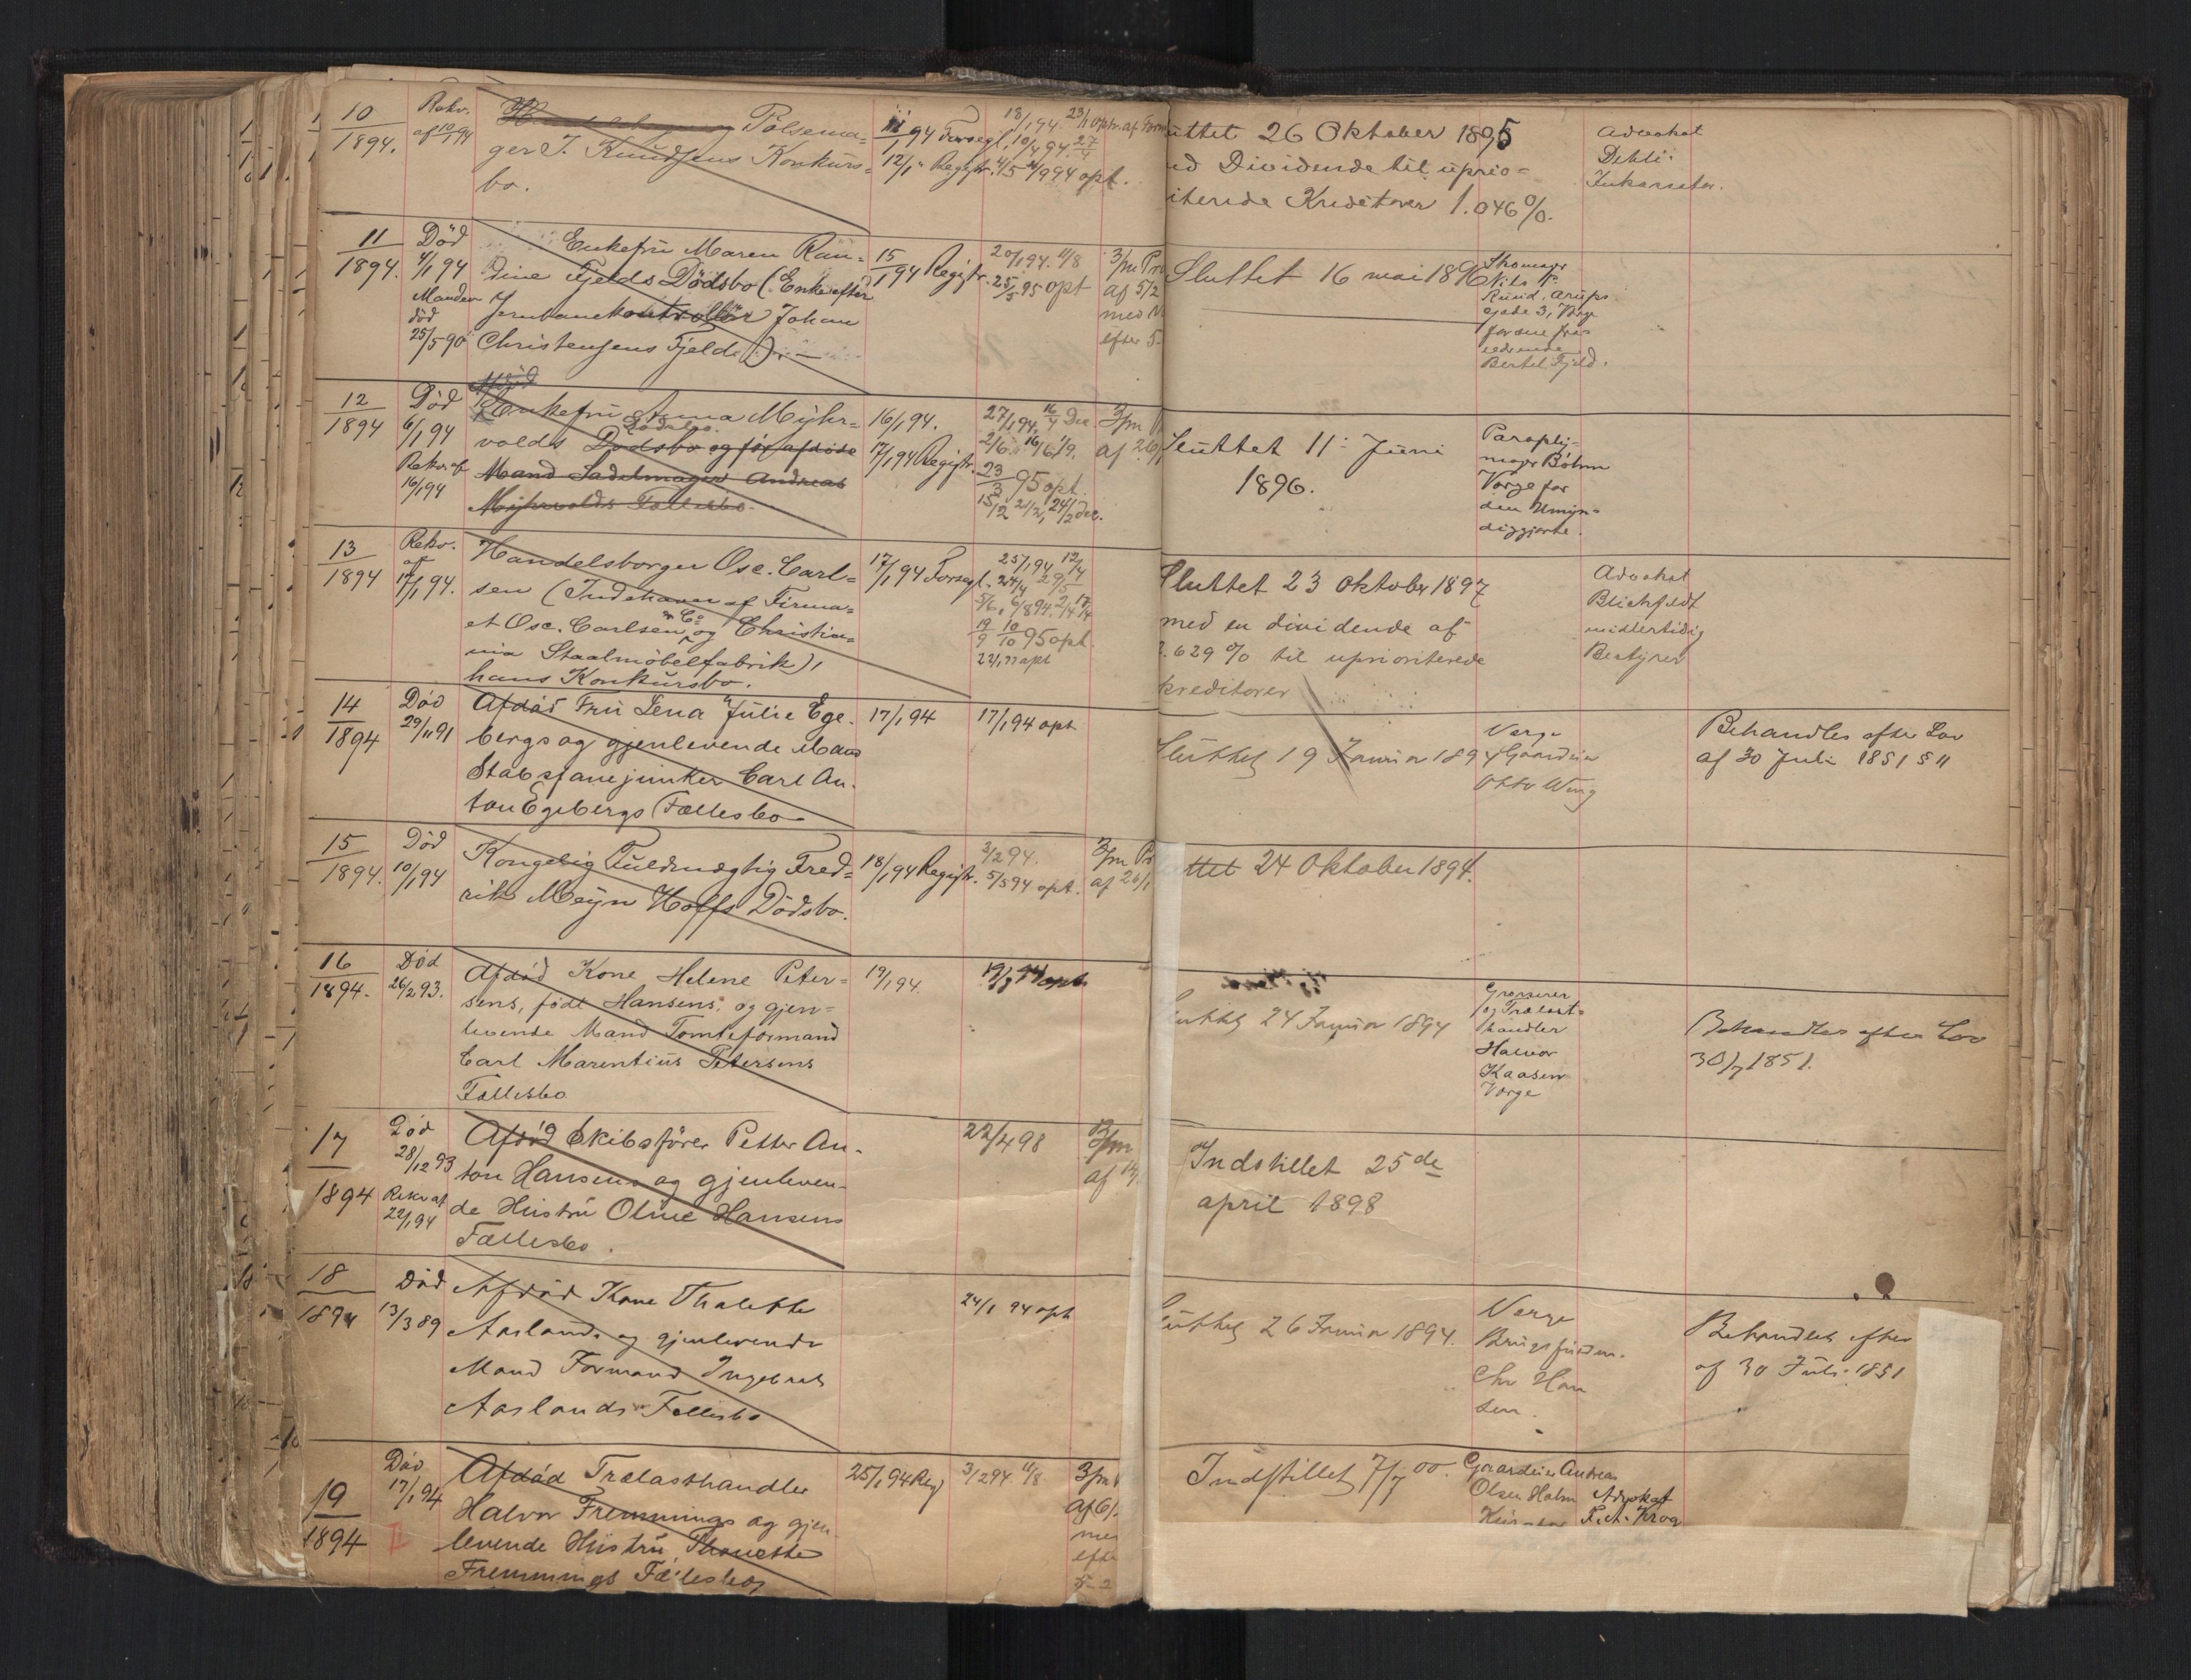 10
1894.
Rekv.
af 10/1 94
Pølsema-
ger J. Knudsens Konkurs-
bo.
11/1 94 Forsegl.
12/1 " Registr.
18/1 94.
10/4 94.
94 opt.
uttet 26 Oktober 1895
ed Dividende til uprio-
iterede Kreditorer 1.046%.
Advokat
Dehli
11
1894.
Död
4/1 94
Manden
död
25/5 90
Enkefru Maren Ran-
dine Fjelds Dödsbo (Enke efter
Jernbanekontrollör Johan
Christensens Fjeld).
15/1 94 Registr.
20/1 94. 11/8
25/5 95 opt
3/m Pro
af 5/2
med
efter 5-
Sluttet 16 mai 1896
Nils
Ruud, Arups
gade 3, Værge
for
Bertel Fjeld.
12
1894
Död
6/1 94
Rekv. af
16/1 94
Afdöd
Enkefru Anna Myhr-
volds Dödsbo og før afdøde
Mand Sadelmager Andreas
Myhrvolds Fællesbo.
16/1 94.
17/1 94 Registr.
27/1 94.
23/3 95 opt.
3/m
af 26/
Sluttet 11: Juni
1896.
Paraply-
mager Böhm
Værge for
den Umyn-
diggjorte.
13
1894
Rekv.
af
17/1 94.
Handelsborger Osc. Carl-
sen (Indehaver af Firma-
et Osc. Carlsen & Co og Christia-
nia Staalmöbelfabrik),
hans Konkursbo.
17/1 94 Forsegl.
25/1 94
95 opt.
Sluttet 23 oktober 1897
med en dividende af
.629 % til uprioriterede
kreditorer
Advokat
Blichfeldt
midlertidig
Bestyrer
14
1894
Död
29/11 91
Afdöd Fru Lena Julie Ege-
bergs og gjenlevende Mand
Stabsfanejunker Carl An-
ton Egebergs Fællesbo
17/1 94
17/1 94 opt
Sluttet 19 Januar 1894
Værge
Gaardeier
Otto Wang
Behandles efter Lov
af 30 Juli 1851 § 11
15
1894.
Död
10/1 94
Kongelig Fuldmægtig Fred-
rik Meyn Hoffs Dödsbo.
18/1 94 Registr.
3/2 94.
5/5 94 opt.
3/m Pr
af 26/1
uttet 24 Oktober 1894.
16
1894.
Död
26/2 93.
Afdöd Kone Helene Peter-
sens, född Hansens, og gjen-
levende Mand Tomteformand
Carl Marentius Petersens
Fællesbo
19/1 94.
19/1 94 opt.
luttet 24 Januar 1894
Grosserer
og Trælast-
handler
Halvor
Kaasen
Værge
Behandles efter Lov
30/7 1851.
17
1894
Död
28/12 93
Rekv af
22/1 94
Afdöd Skibsförer Petter An-
ton Hansens og gjenleven-
de Hustru Oline Hansens
Fællesbo.
22/4 98
3/m
af 14/
Indstillet 25de
april 1898
18
1894
Död
13/3 89
Afdöd Kone Thalette
Aaslands og gjenlevende
Mand Formand Ingebret
Aaslands Fællesbo
24/1 94 opt
luttet 26 Januar 1894.
Værge
Brugsfuldm.
Chr Han
sen.
Behandlet efter
af 30 Juli 1851
19
1894
Död
17/1 94
Afdöd Trælasthandler
Halvor Fremmings og gjen-
levende Hustru Thonette
Fremmings Fællesbo,
25/1 94 Reg
3/2 94 11/8
3/m
af 6/
me
efte
5-2
Indstillet 7/7 00.
Gaardeier Andreas
Olsen Holm
Advokat
F. A. Krog